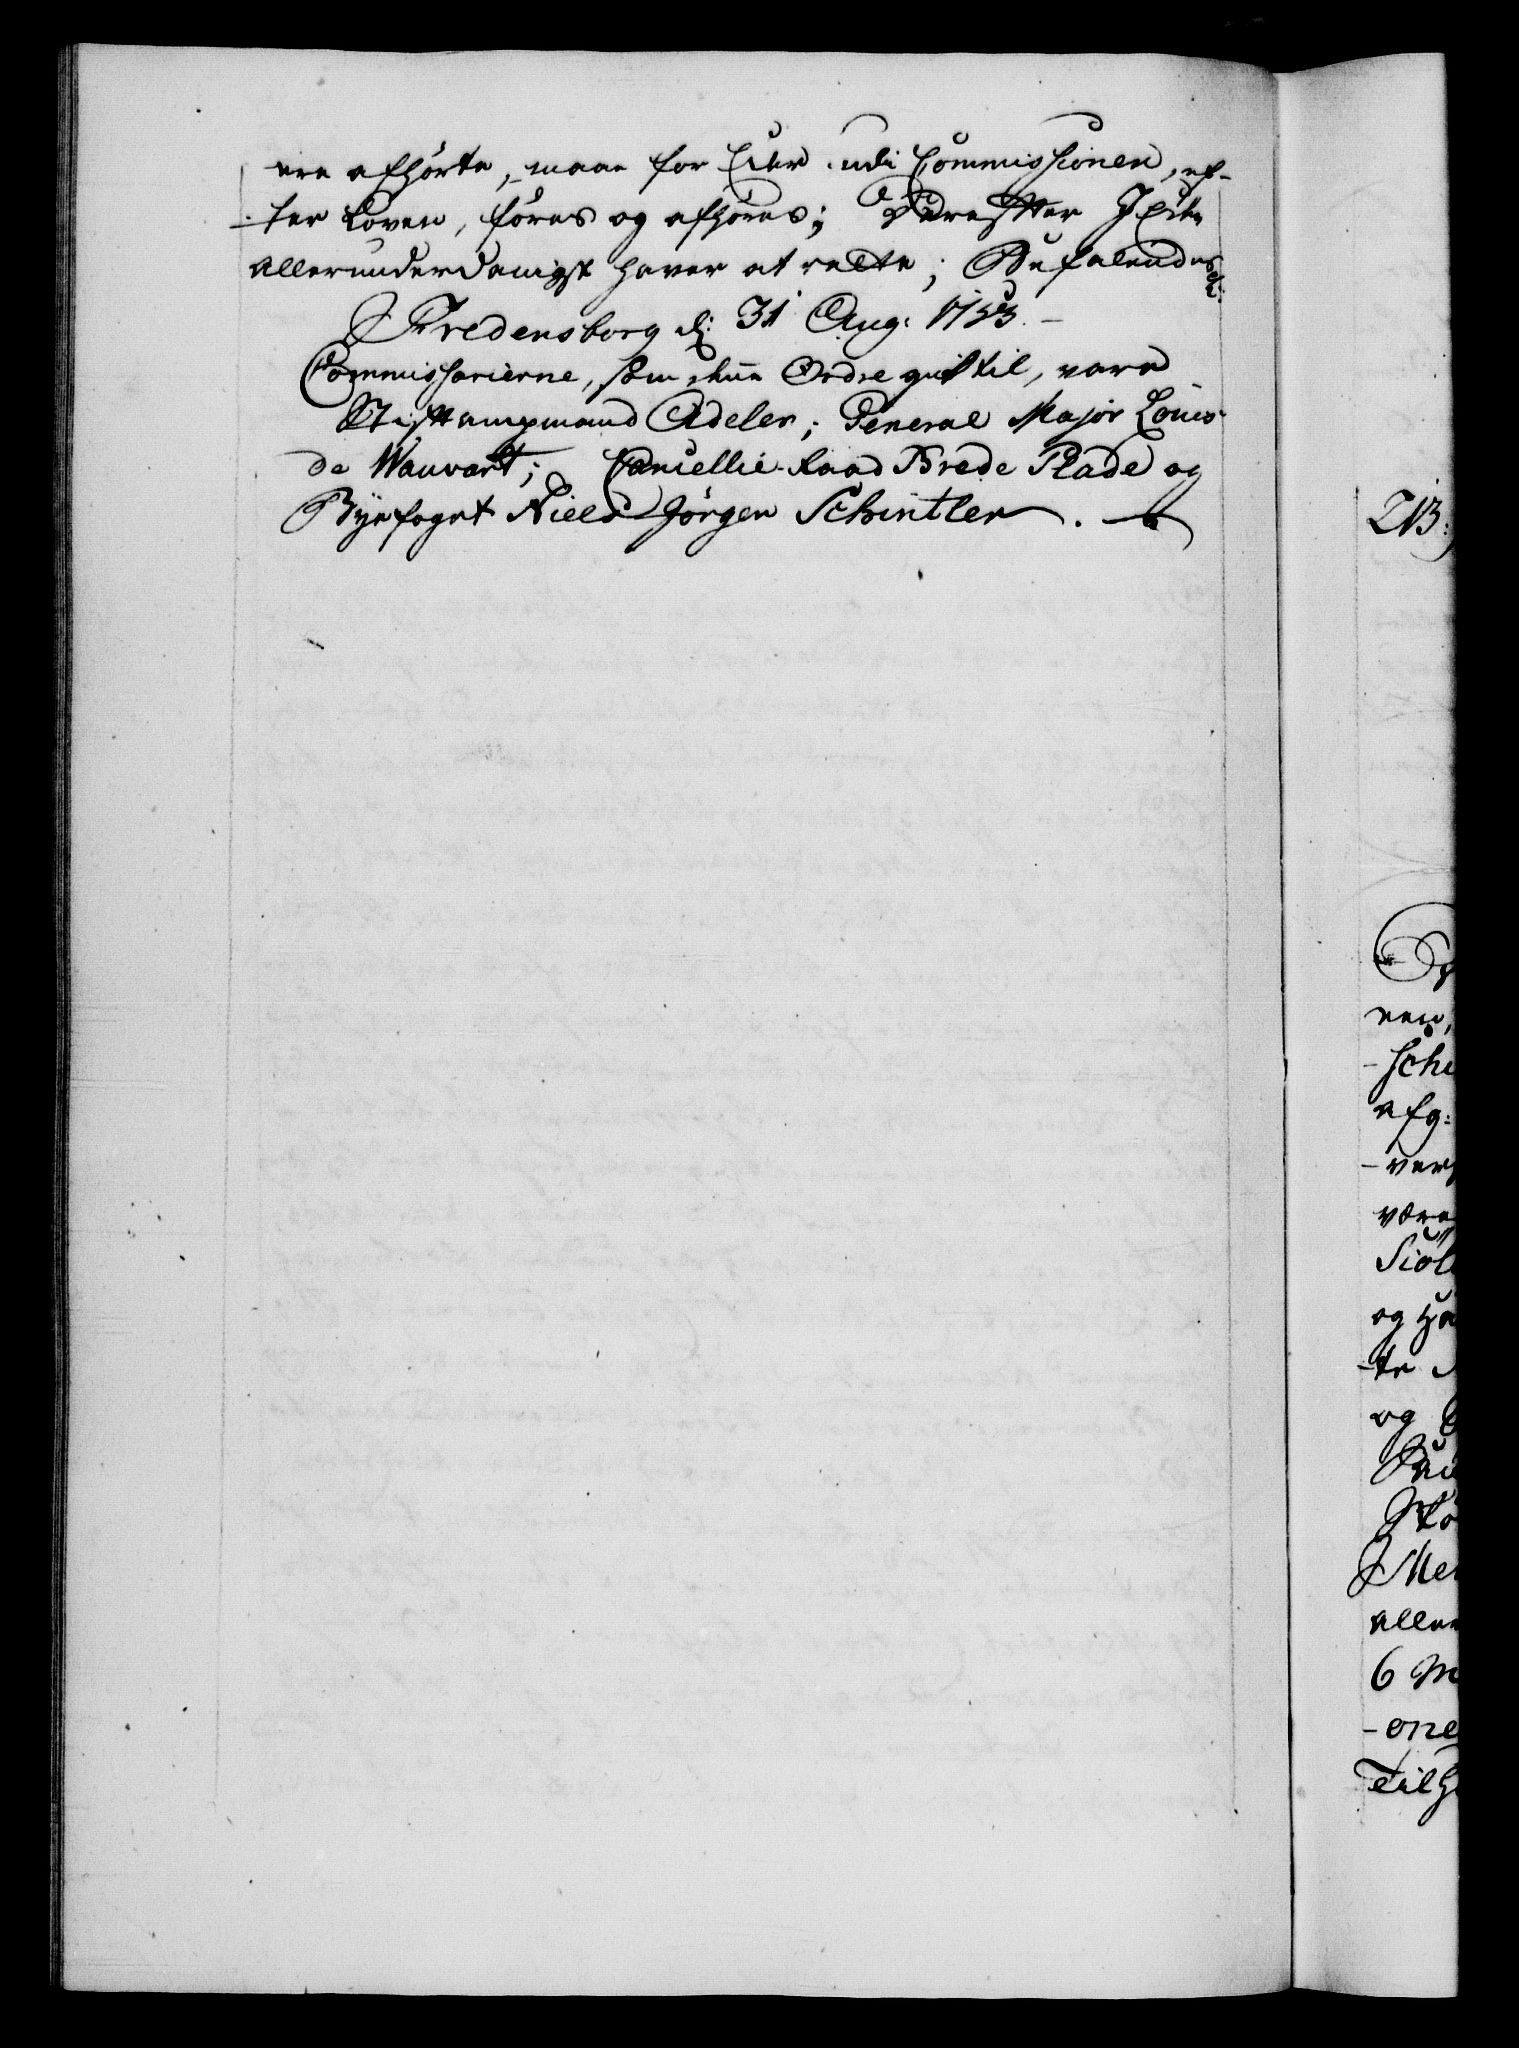 ere afhörte, maae for Eder udi Commissionen, ef-
-ter Loven, föres og afhöres; Derefter I Eder
allerunderdanigst haver at rette; Befalendes &c:
Fredensborg d: 31 Aug: 1733.
Commissarierne, som denne Ordre gik til, vare
Stiftampmand Adeler; General Major Louis
de Wauvert; Cancellie-Raad Brede Rade og
Byefoget Niels Jörgen Schintler.
213:
een,
-schi
afg:
-ver
være
Siöl
og Ha
-te
og
Mer
aller
6 M
-one
Tilh